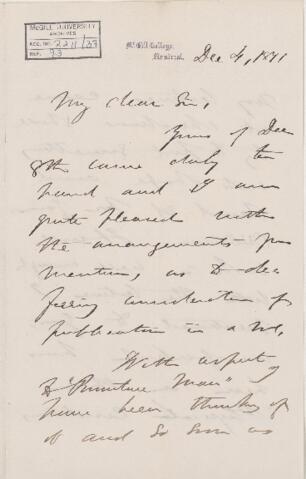 McGILL UNIVERSITY
ARCHIVES
ACC. NO. 2211/23
REF. 93
McGill College,
Montreal.
Dec 4, 1871
My dear Sir,
Yours of Dec
8th came duly to
hand and I am
quite pleased with
the arrangements you
mention, as to
consideration of
publication in a vol.
With
"Primitive Man"
have been thinking of
it and so soon as